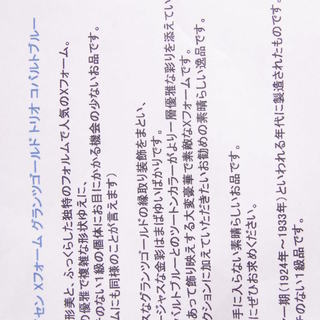 セン Xフォーム グランツゴールド トリオ コバルトブルー
形美と、ふっくらした独特のフォルムで人気のXフォーム。
の優雅で複雑な形状ゆえに、
のない1級の個体にお目にかかる機会の少ないお品です。
ムにも同様のことが言えます)
なグランツゴールドの縁取り装飾をまとい、
ージャスな金彩はまばゆいばかりです。
バルトブルーとのツートンカラーがより一層優雅な彩りを添えてい
あって飾り映えする大変豪華で素敵なXフォームです。
クションに加えていただきたいお勧めの素晴らしい逸品です。
手に入らない素晴らしいお品です。
にぜひお求めください。
一期(1924年~1933年)といわれる年代に製造されたものです。
チのない1級品です。